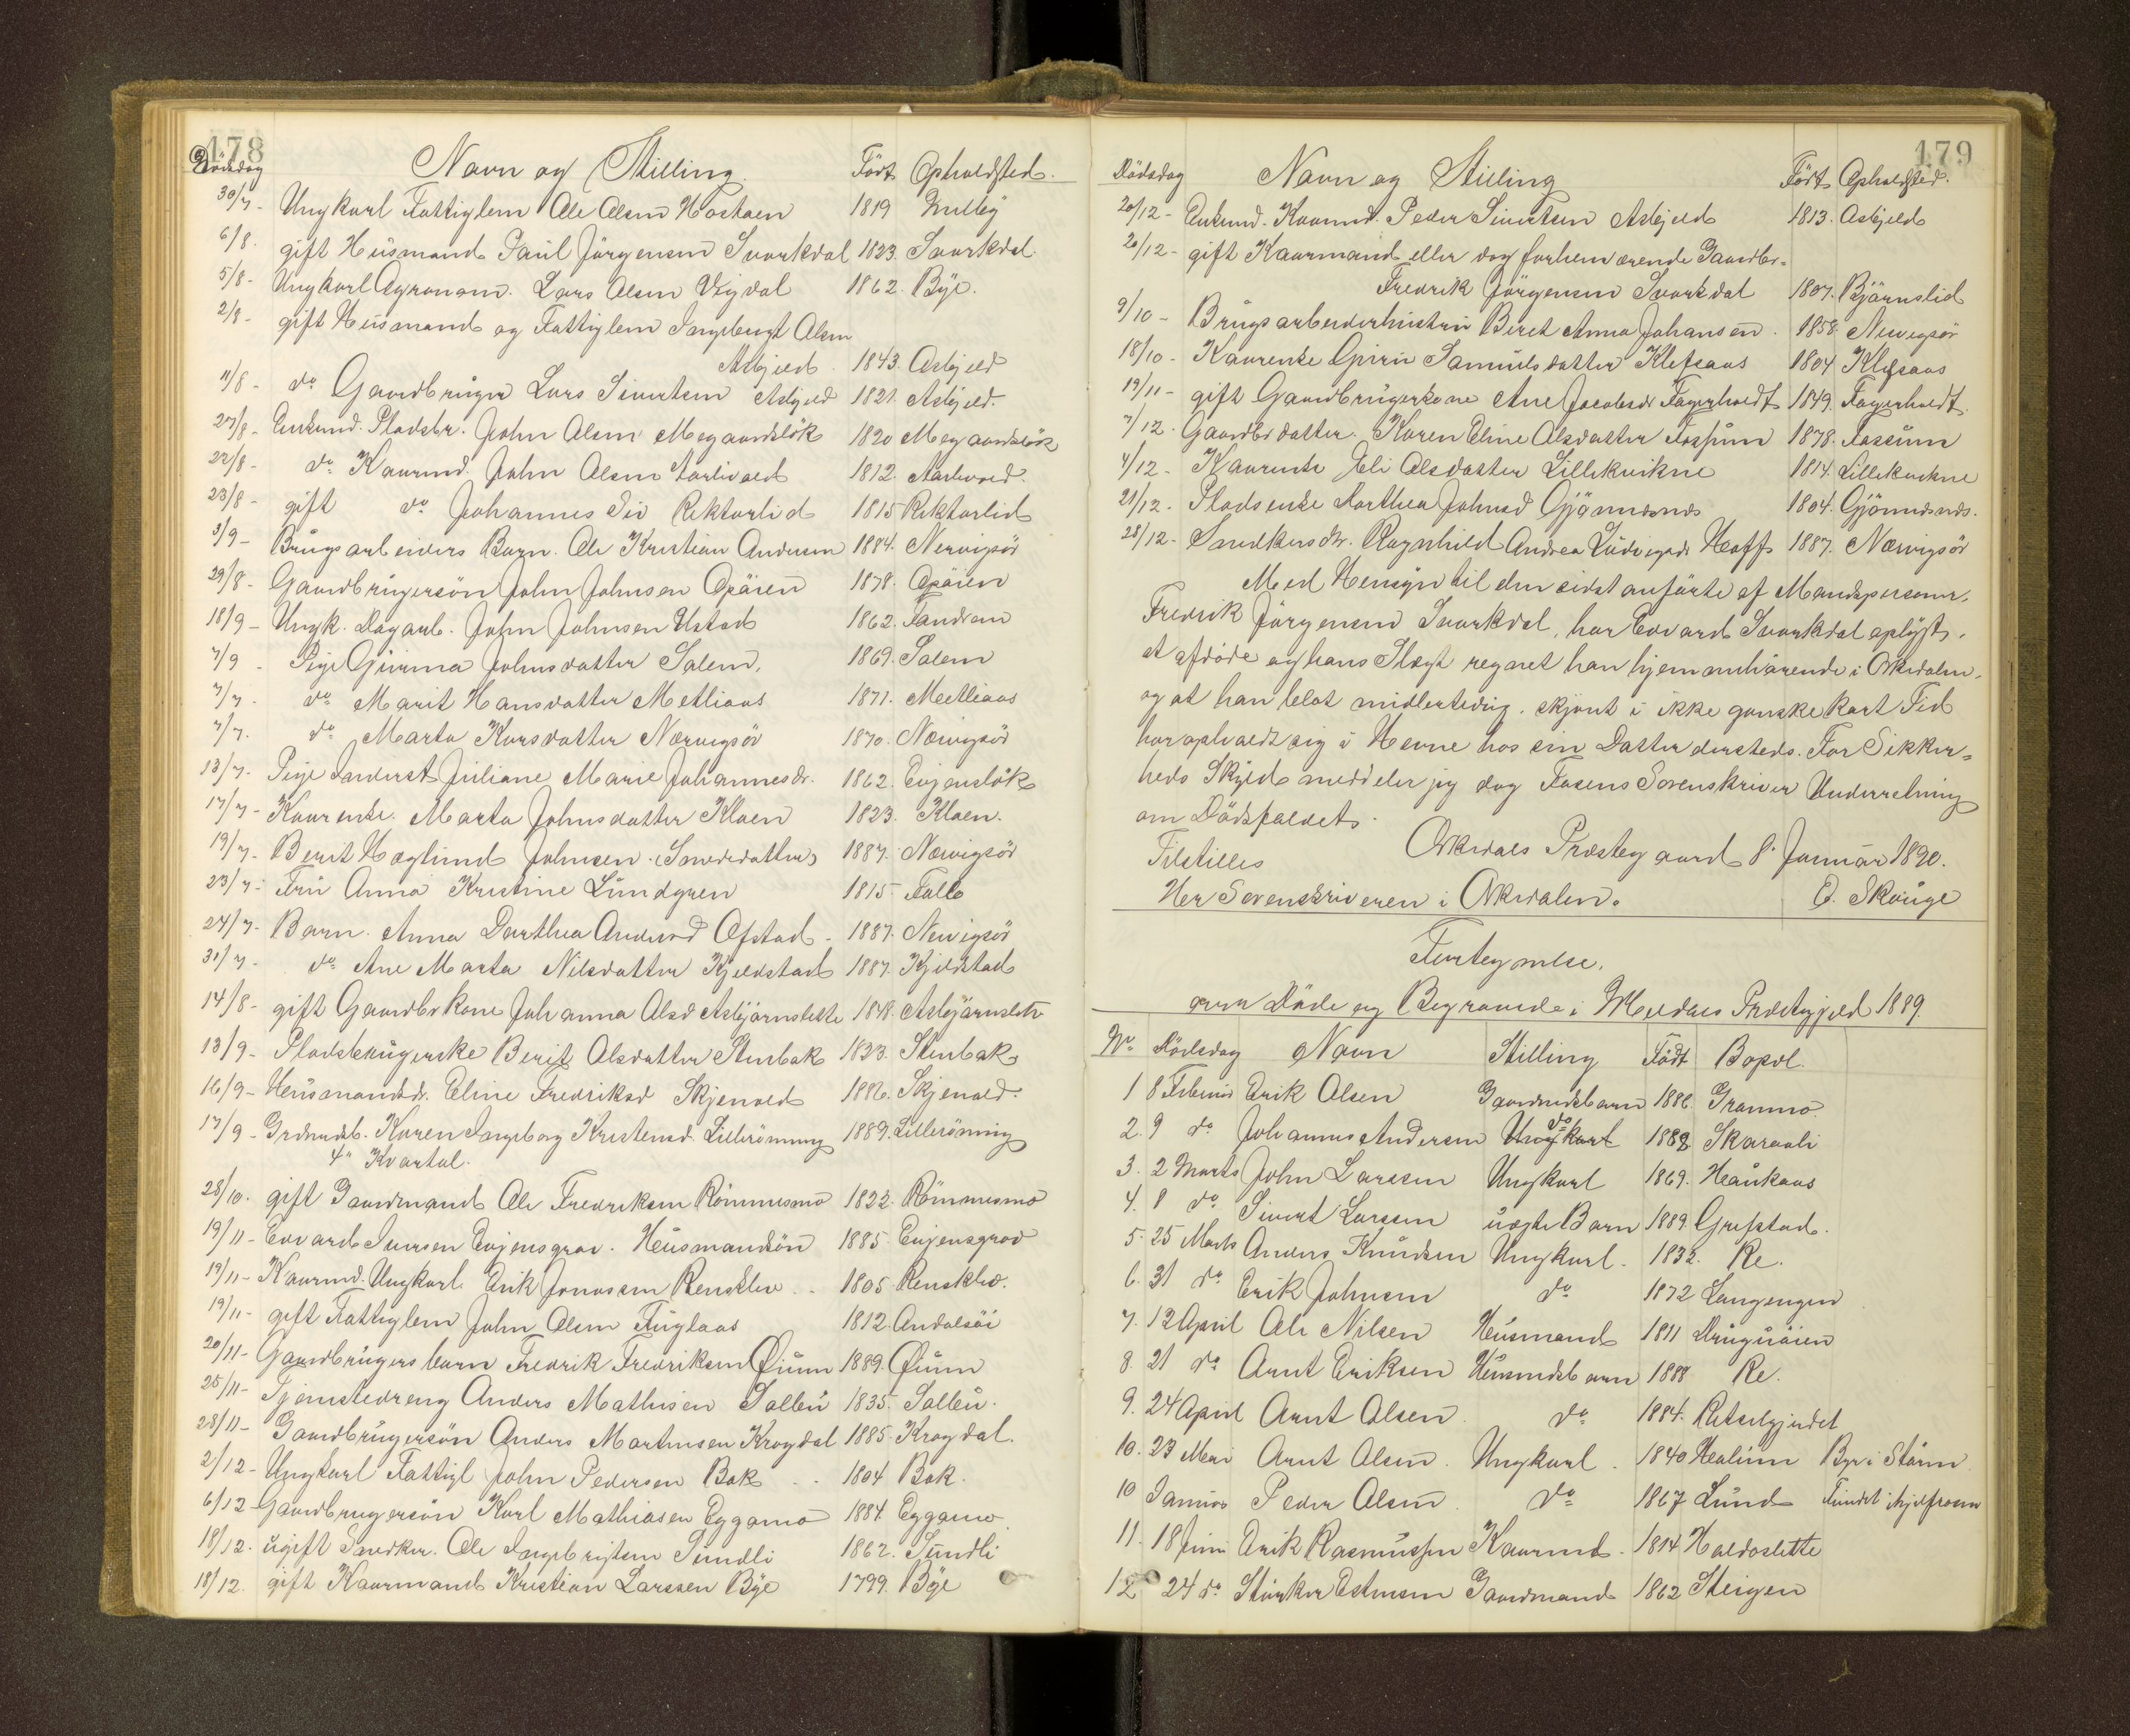 178
Dödsdag Navn og Stilling. Födt Opholdsted.
30/7 - Ungkarl Fattiglem Ole Olsen Hostoen 1819 Melby
6/8. gift Husmand Paul Jörgensen Svorkdal 1823. Svorkdal
5/8 - Ungkarl Agronom. Lars Olsen Vigdal 1862. Bye.
2/8 - gift Husmand og Fattiglem Ingebrigt Olsen
Asbjeld 1843. Asbjeld
11/8 - do Gaardbruger Lars Sivertsen Asbjeld 1821. Asbjeld.
27/8 - Enkemd. Pladsbr. John Olsen Megaardslök 1820 Megaardslök
22/8 - do Kaarmd. John Olsen Aarlivold 1812. Aarlivold.
23/8 - gift do Johannes Siv Riktarlid 1815 Riktarlid
3/9 - Brugsarbeiders Barn. Ole Kristian Andersen 1884. Nervigsör
29/8 - Gaardbrugersön John Johnsen Opöien 1878. Opöien
18/9 - Ungk. Dagarb. John Johnsen Ustad 1862. Fandrem
7/9 - Pige Gurina Johnsdatter Solem. 1869. Solem
7/7 - do Marit Hansdatter Metliaas 1871. Meetliaas
7/7. do Marta Larsdatter Nervigsör 1870. Nervigsör
13/7 - Pige Inderst Juliane Marie Johannesdr. 1862. Evjenslök
17/7 - Kaarenke. Marta Johnsdatter Kloen 1823. Kloen.
19/7. Berit Hoglund Johnsen. (Smededatter) 1887. Nervigsör
23/7 - Fru Anna Kristine Lundgren 1815 - Follo
24/7 - Barn. Anna Dorthea Andersd Ofstad - 1887. Nervigsör
31/7 - do Ane Marta Nilsdatter Kjeldstad 1887. Kjeldstad
14/8 - gift Gaardbrkone Johanna Olsd Asbjörnslette 1848. Asbjörnslett
13/9 - Pladsbrugerske Berit Olsdatter Stenbak 1823. Stenbak
16/9 - Husmandsdr. Eline Fredriksd Skjenald 1886. Skjenald.
17/9 - Grdmdsb. Karen Ingeborg Kristensd. Lillerönning 1889. Lillerönning
4de Kvartal.
28/10. gift Gaardmand Ole Fredriksen Römmesmo 1822. Römmesmo
19/11 - Edvard Iversen Evjensgrav. Husmandsön 1885. Evjensgrav
19/11 - Kaarmd. Ungkarl. Erik Jonassen Rensklev - 1805. Rensklev.
19/11 - gift Fattiglem John Olsen Fuglaas 1812. Andalsöi
20/11 - Gaardbrugersbarn Fredrik Fredriksen Öium 1889. Öium
25/11 - Tjenestedreng Anders Mathisen Solbu 1835. Solbu.
28/11 - Gaardbrugersön Anders Martinsen Krogdal 1885. Krogdal.
2/12 - Ungkarl Fattigl John Pedersen Bak - 1804 Bak.
6/12 - Gaardbrugersön Karl Mathiasen Eggamo 1884. Eggamo
18/12. ugift Snedker. Ole Ingebrigtsen Sundli 1862. Sundli
18/12. gift Kaarmand Kristian Larssen Bye 1799. Bye
179
Dödsdag Navn og Stilling Födt Opholdsted.
20/12 - Enkemd. Kaarmd. Peder Sivertsen Asbjeld 1813. Asbjeld
20/12 - gift Kaarmand eller dog forhenværende Gaardbr.
Fredrik Jörgensen Svorkdal 1807. Bjärnslid
9/10 - Brugsarbeiderhustru Beret Anna Johansen. 1858. Nervigsör
18/10 - Kaarenke Guru Samuelsdatter Klefsaas 1804 Klefsaas
19/11 - gift Gaardbrugerkone Ane Jacobsdr Fagerholdt 1849. Fagerholdt
7/12. Gaardbr datter. Karen Eline Olsdatter Fossum 1878. Fossum
4/12 - Kaarenke Eli Olsdatter Lillekvikne 1814. Lillekvikne
21/12. Pladsenke Dorthea Johnsd Gjönnesmds 1804. Gjönnesmds.
28/12 - Snedkersdr. Ragnhild Andrea Ludvigsdr Hoff 1887. Nervigsör
Med Hensyn til den sidst anförte af Mandspersoner,
Fredrik Jörgensen Svorkdal, har Edvard Svorkdal oplyst,
at afdöde og hans Slægt regnet han hjemmehörende i Orkedalen,
og at han blot midlertidig. skjönt i ikke ganske kort Tid
har opholdt sig i Hevne hos sin Datter dersteds. For Sikker=
heds Skyld meddeler jeg dog Fosens Sorenskriver Underretning
om Dödsfaldet.
Tilstilles Orkedals Præstegaard 8. Januar 1890.
Her Sorenskriveren i Orkedalen. O. Skauge
Fortegnelse.
over Döde og Begravede i Meldals Præstegjeld 1889.
No. Dödsdag Navn Stilling Födt Bopæl.
1 8 Februar Erik Olsen Gaardmdsbarn 1888. Grammo
2. 9 do Johannes Andersen do 1888 Skaraali
3. 2 Marts John Larssen Ungkarl 1869. Haukaas
4. 8 do Sivert Larssen uægte Barn 1889. Grefstad.
5. 25 Marts Anders Knudsen Ungkarl. 1832. Re.
6. 31 do Erik Johnsen do 1872 Langengen
7. 12 April Ole Nilsen Husmand 1811 Druguöien
8 21 do Arnt Eriksen Husmdsbarn 1888 Re.
9. 24 April Arnt Olsen do 1884. Ritselgjerdet
10. 23 Mai Arnt Olsen. Ungkarl. 1840 Healium Byr i Stören
10 Januar Peder Olsen. do 1867 Lund Fundet ihjelfroen
11. 18 Juni Erik Rasmussen Kaarmd. 1814 Holdoslette
12 24 do Störker Estensen Gaardmand 1862 Steigen